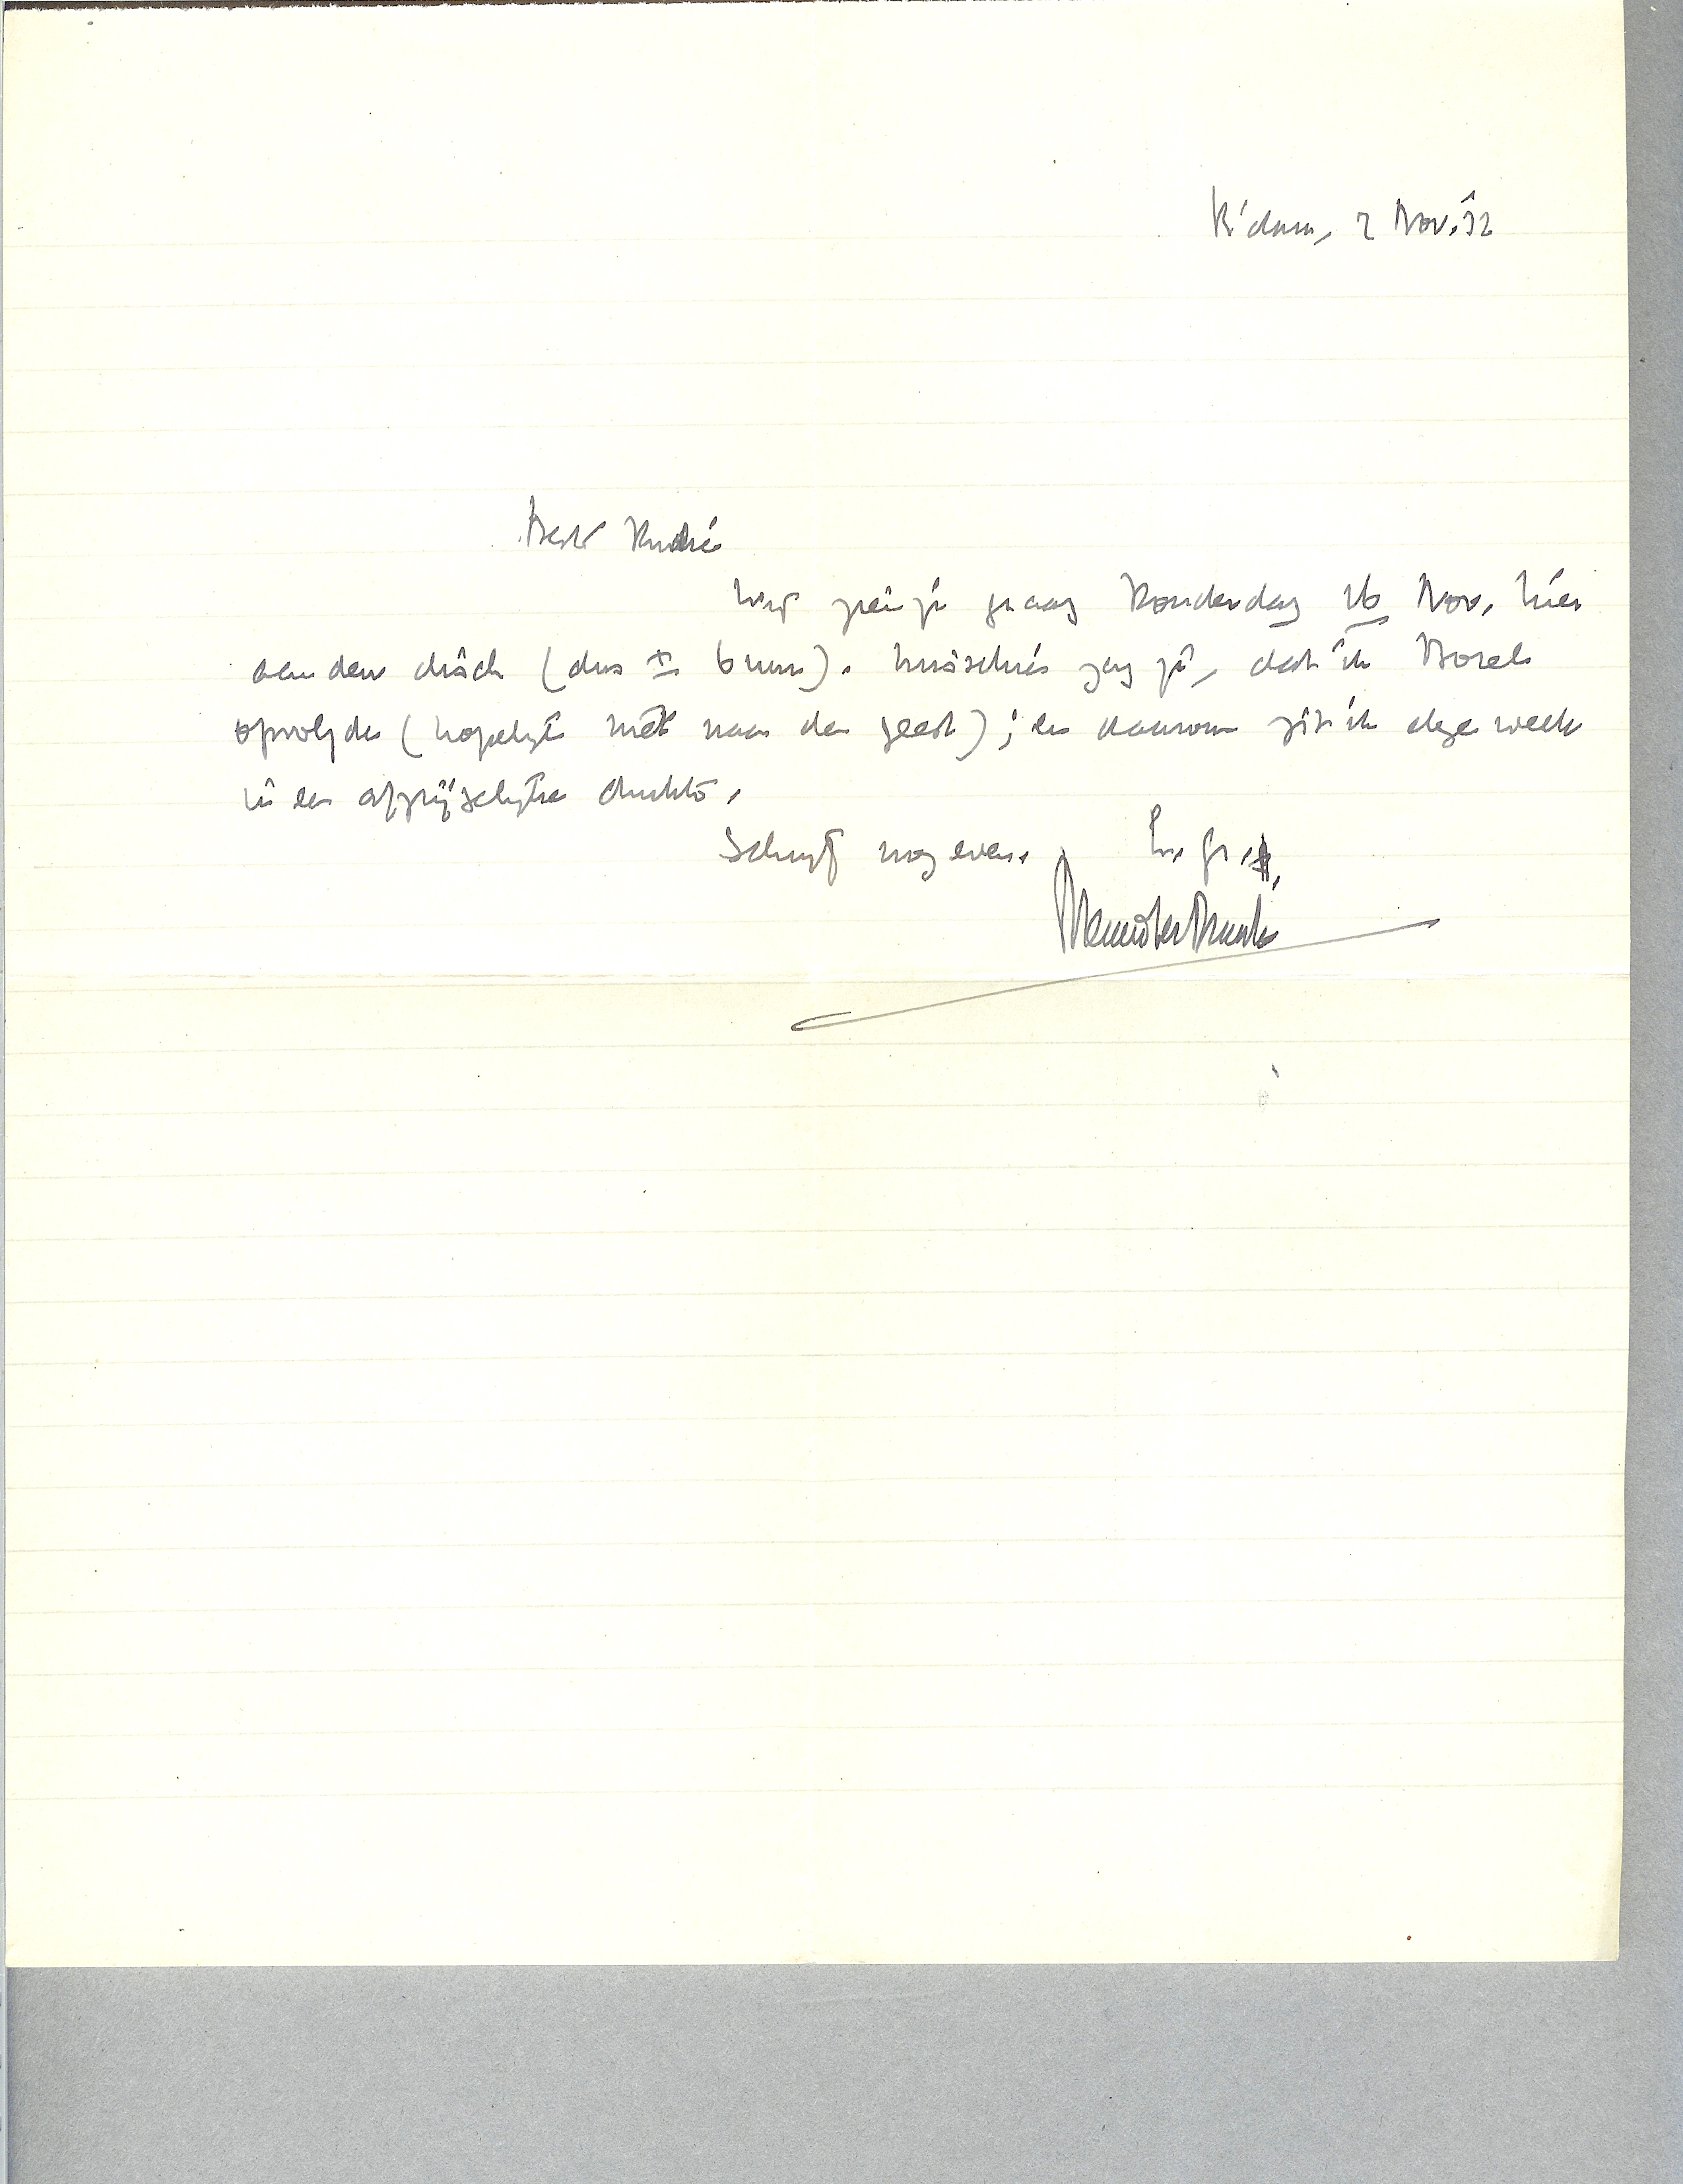 R'dam, 2 Nov. '32
Beste Rudie
Wij zien je graag Donderdag 16 Nov. hier
aan den disch (dus ± 6 uur). Misschien zag je, dat ik Borel
opvolgde (hopelijk niet naar den geest); en daarom zit ik deze week
in een afgrijselijke drukte.
Schrijf nog even. h. gr.,
Menno ter Braak